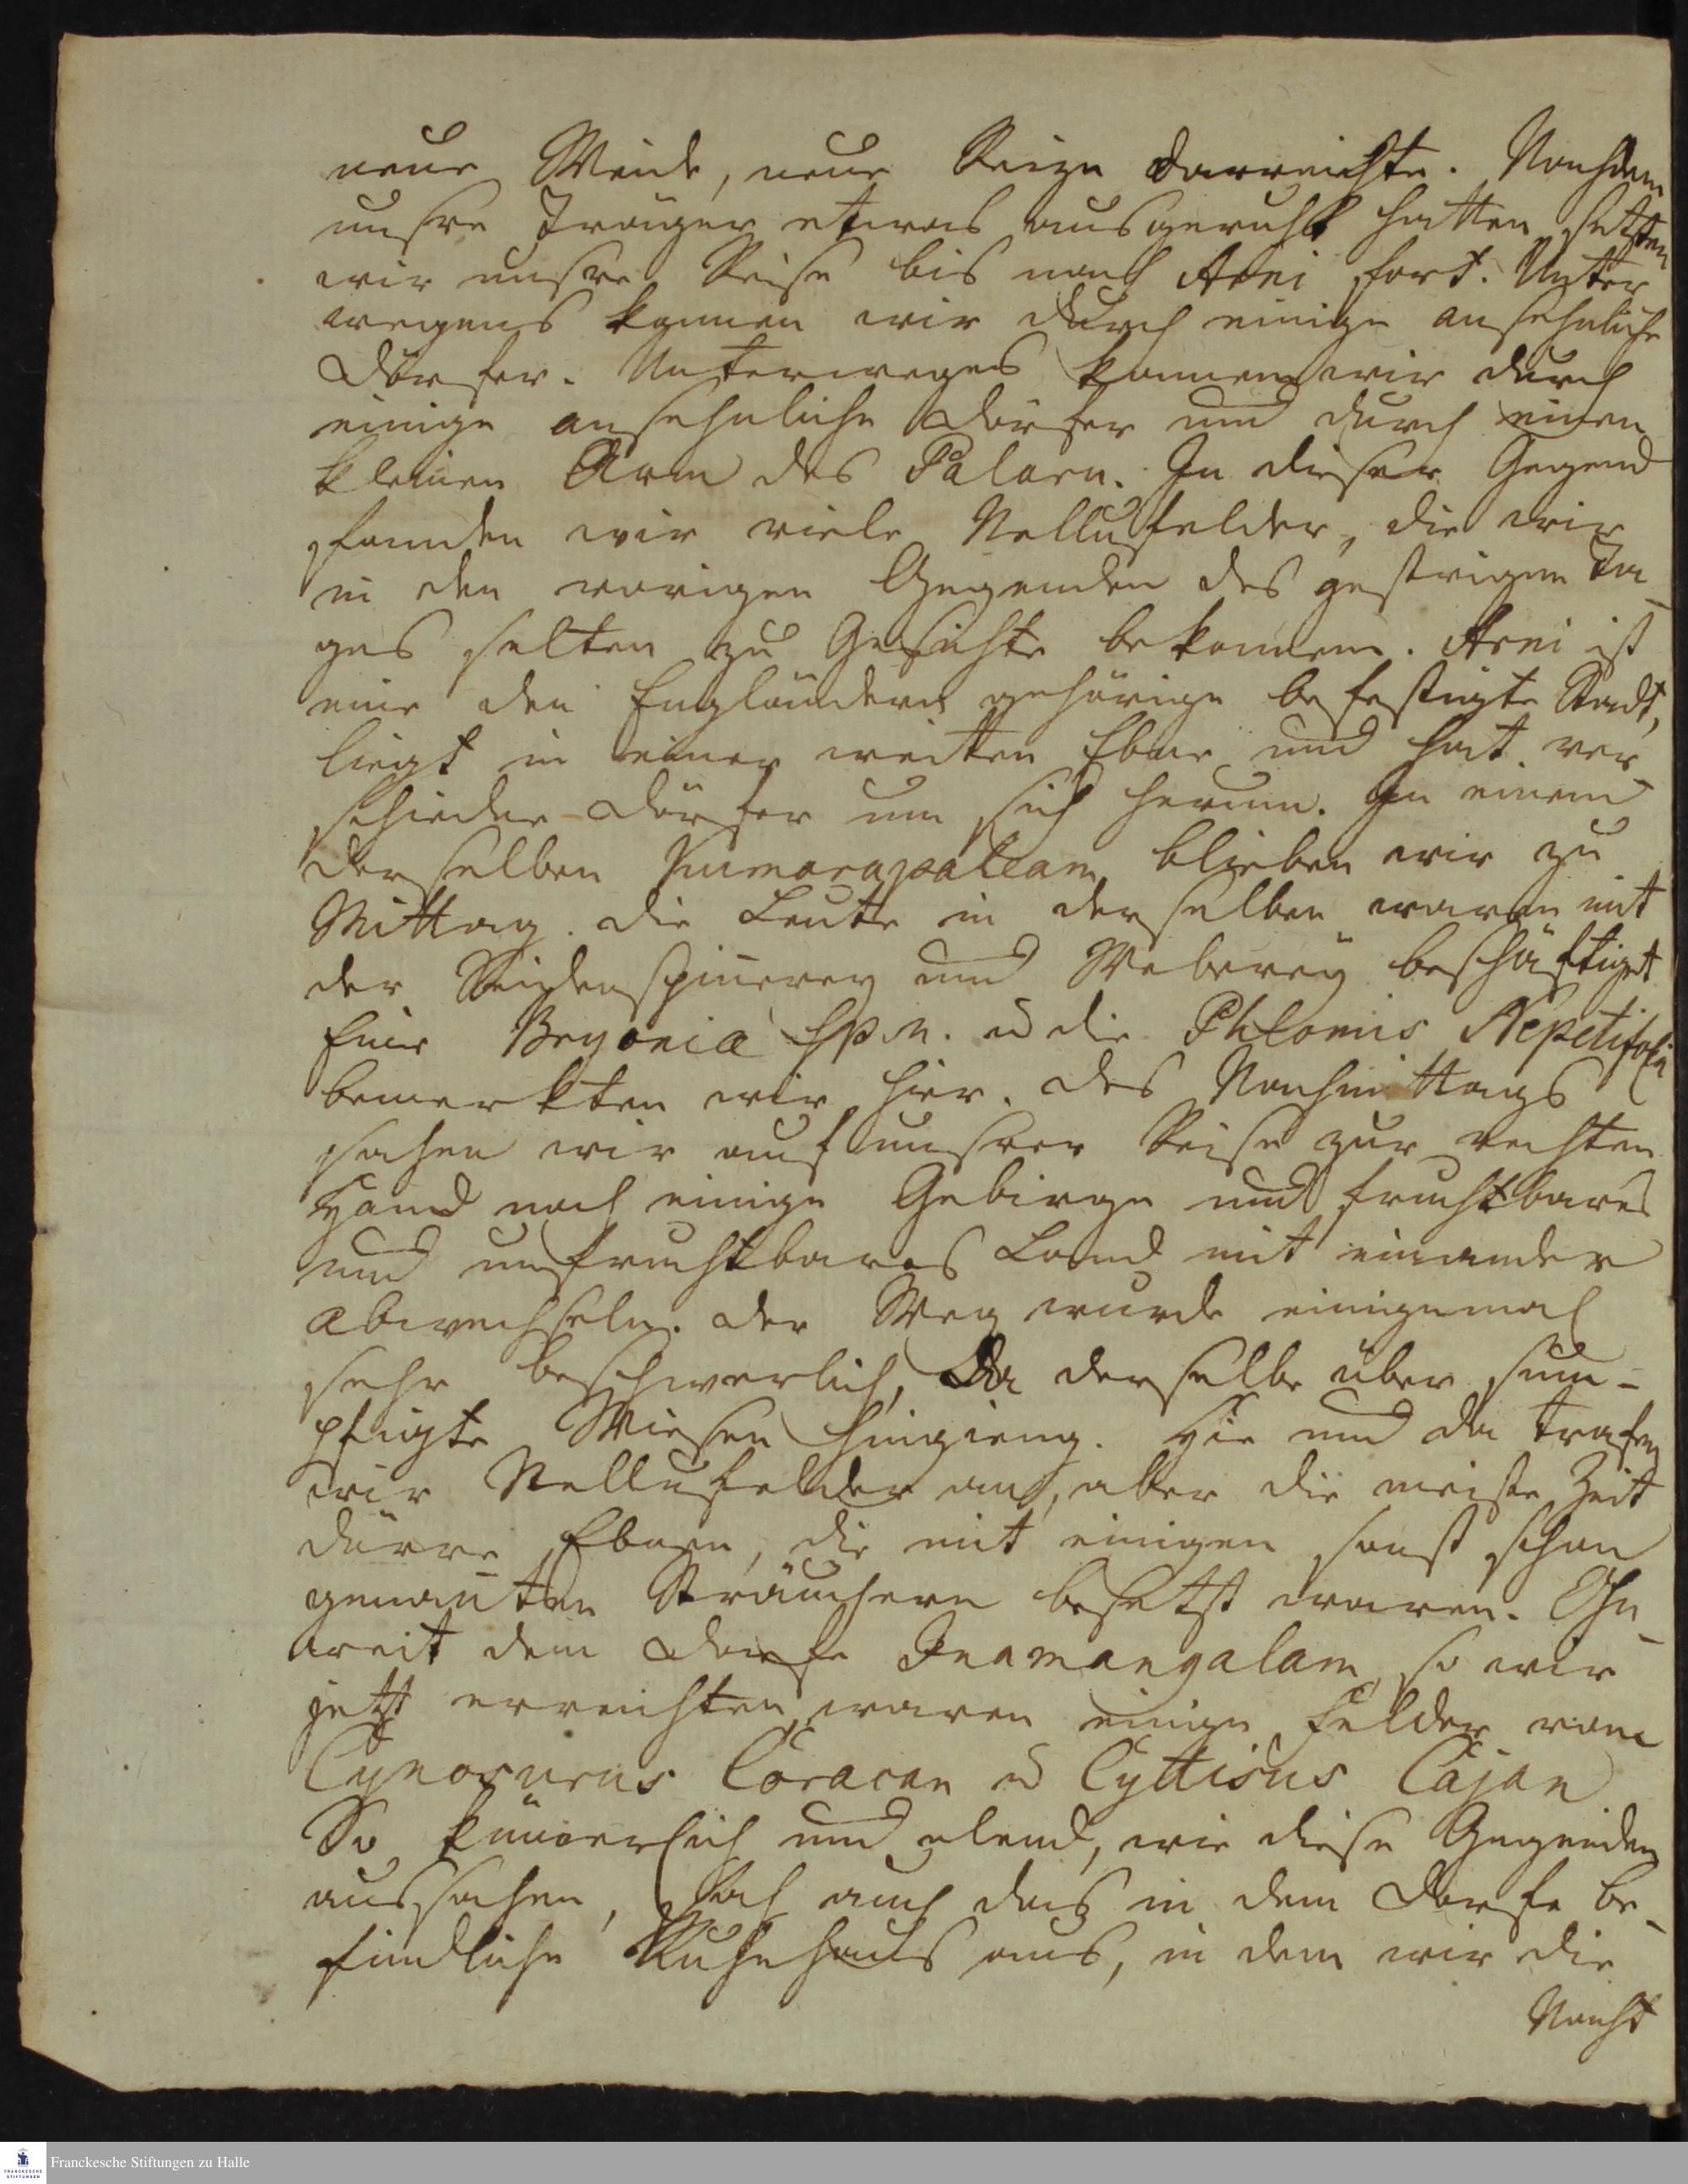 neue Weide, neue Reize darreichte. Nachdem
unsre Träger etwas ausgeruht hatten, setzten
wir unsre Reise bis nach Arni fort. Unter
wegens kamen wir durch einige ansehnliche
Dörfer. Unterweges kamen wir durch
einige ansehnliche Dörfer und durch einen
kleinen Arm des Palaru. In dieser Gegend
fanden wir viele Nellufelder, die wir
in den vorigen Gegenden des gestrigen Ta-
ges selten zu Gesichte bekommen. Arni ist
eine den Engländern gehörige befestigte Stadt,
liegt in einer weiten Ebne und hat ver-
schiedne Dörfer um sich herum. In einem
derselben Kumarapaleam blieben wir zu
Mittag. Die Leute in derselben waren mit
der Seidenspinerey und Weberey beschäftiget
Eine Bryonia sp. n. u die Phlomis Nepetifolia
bemerkten wir hier. Des Nachmittags
sahen wir auf unsrer Reise zur rechten
Hand noch einige Gebirge und fruchtbares
und unfruchtbares Land mit einander
abwechseln. Der Weg wurde einigemal
sehr beschwerlich, Da derselbe über sum-
pfigte Wiesen hingieng. Hie und da trafen
wir Nellufelder an, aber die meiste Zeit
dürre Ebnen, die mit einigen sonst schon
genanten Sträuchern besetzt waren. Ohn-
weit dem Dorfe Inamangalam, so wir
jetzt erreichten, waren einige Felder vom
Cynosurus Coracan u Cyttisus Cajan
So kümerlich und elend, wie diese Gegenden
aussahen, sah auch das in dem Dorfe be-
findliche Ruhehaus aus, in dem wir die
Nacht
Franckesche Stiftungen zu Halle
FRANCKESCHE
STIFTUNGEN